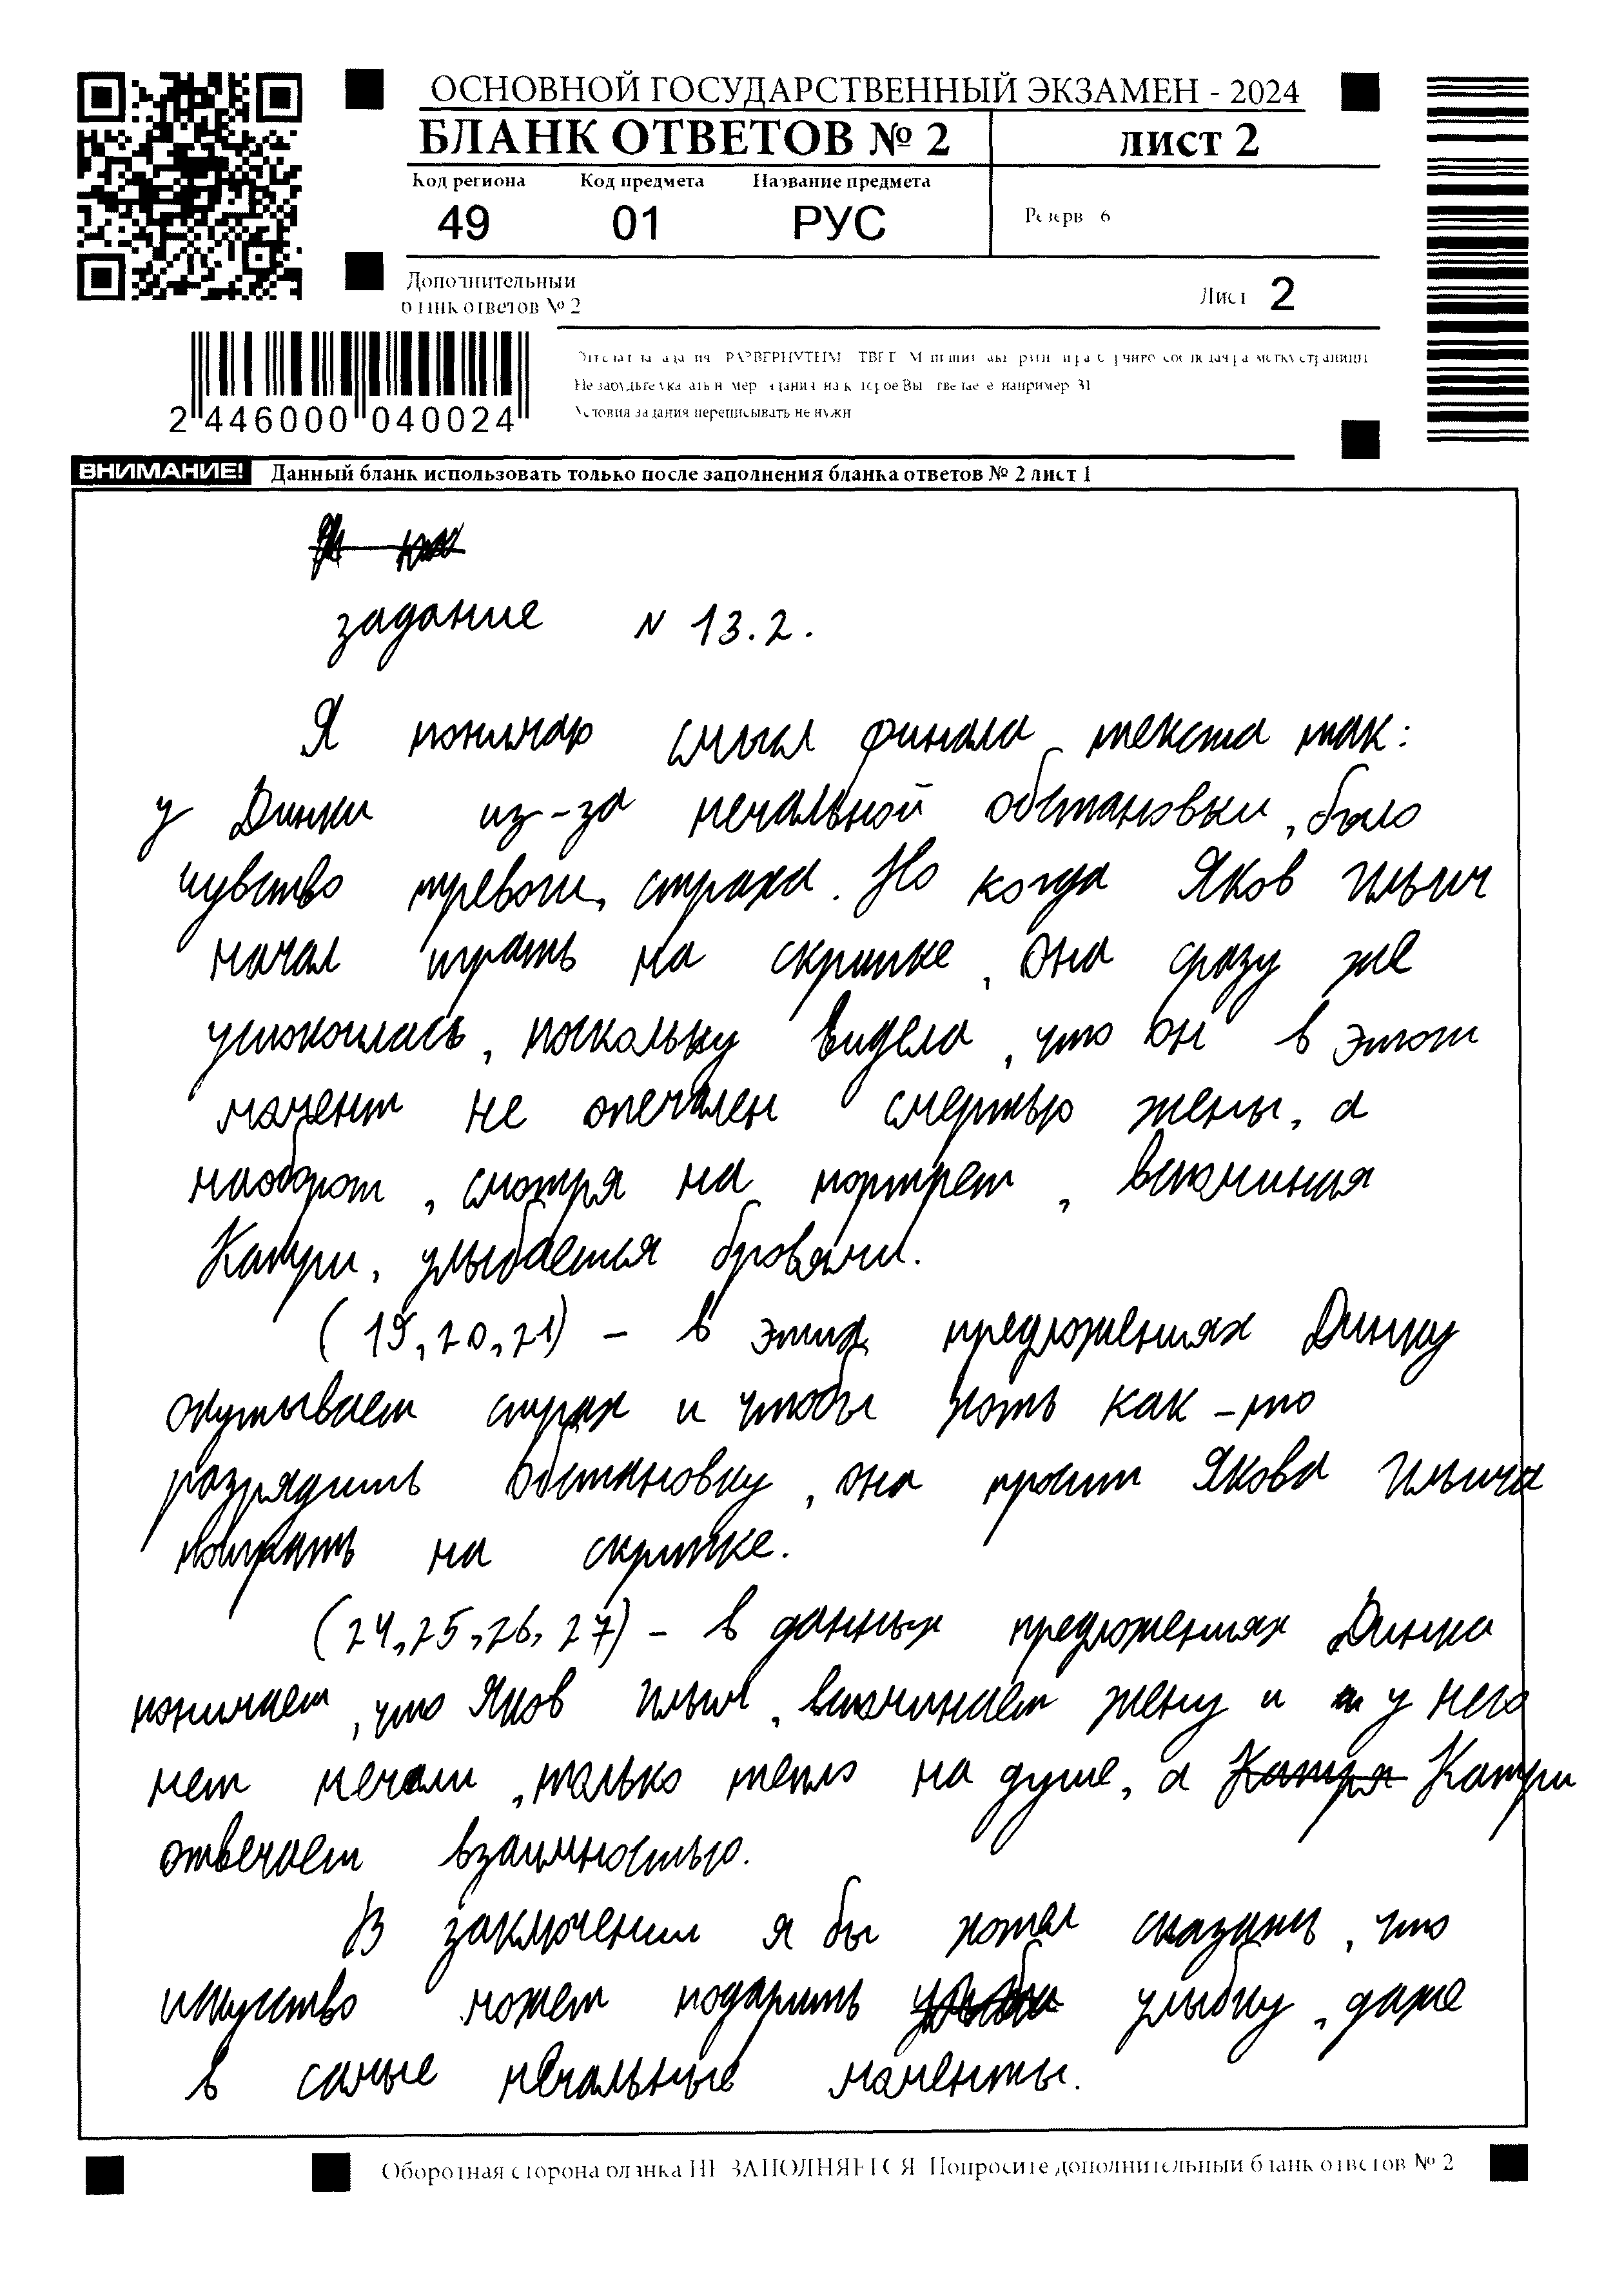 ОСНОВНОЙ ГОСУДАРСТВЕННЫЙ ЭКЗАМЕН - 2024
БЛАНК ОТВЕТОВ № 2
ЛИСТ 2
Код региона Код предмета Название предмета
49 01 РУС
Резерв 6
Дополнительный
бланк ответов № 2
Лист 2
Не забудьте указать номер задания на которое Вы отвечаете например 31
Условия задания переписывать не нужно
2 446000 040024
ВНИМАНИЕ! Данный бланк использовать только после заполнения бланка ответов № 2 лист 1
задание N 13.2.
Я понимаю смысл финала текста так:
у Динки из-за печальной обстановки, было
чувство тревоги, страха. Но когда Яков Ильич
начал играть на скрипке, она сразу же
успокоилась, поскольку видела, что он в этот
момент не опечален смертью жены, а
наоборот, смотря на портрет, вспоминая
Катри, улыбается бровями.
(19,20,21) - в этих предложениях Динку
окутывает страх и чтобы хоть как-то
разрядить обстановку, она просит Якова Ильича
поиграть на скрипке.
(24,25,26,27) - в данных предложениях Динка
понимает, что Яков Ильич, вспоминает жену и у него
нет печали, только тепло на душе, а Катря Катри
отвечает взаимностью.
В заключении я бы хотел сказать, что
искусство может подарить улыбку, даже
в самые печальные моменты.
Оборотная сторона бланка НЕ ЗАПОЛНЯЕТСЯ Попросите дополнительный бланк ответов № 2